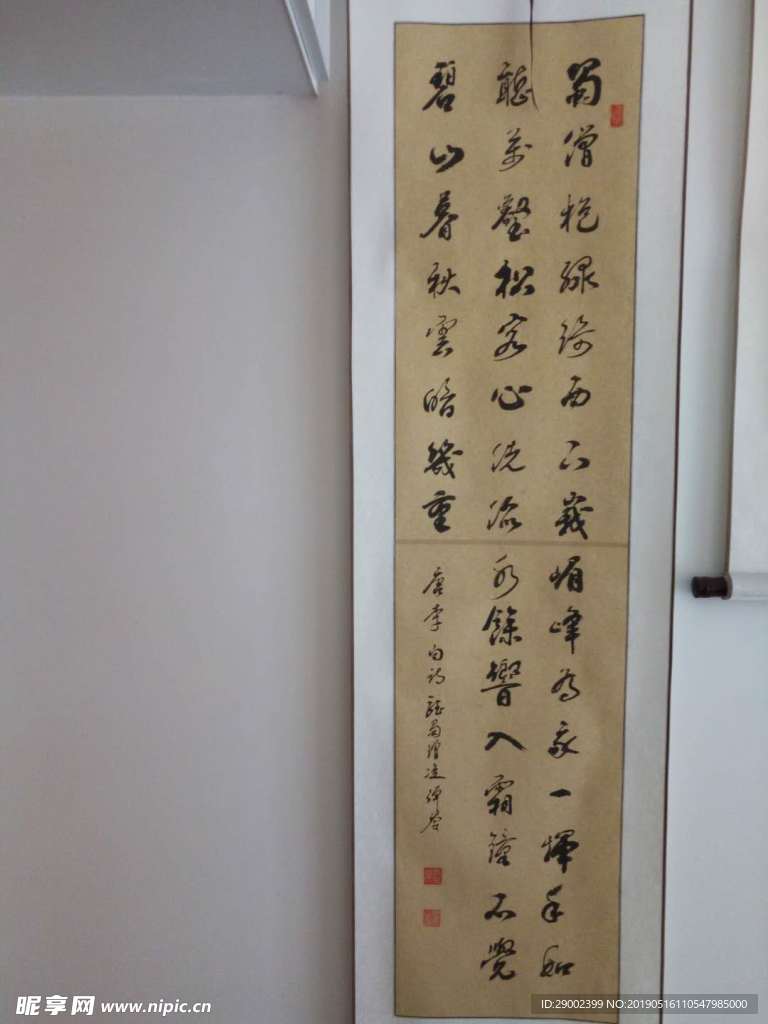 蜀僧抱綠綺西下峩嵋峰為我一揮手如
聽萬壑松客心洗流水餘響入霜鐘不覺
碧山暮秋雲暗幾重
唐李白詩聽蜀僧濬彈琴
昵享网 www.nipic.cn
ID:29002399 NO:20190516110547985000